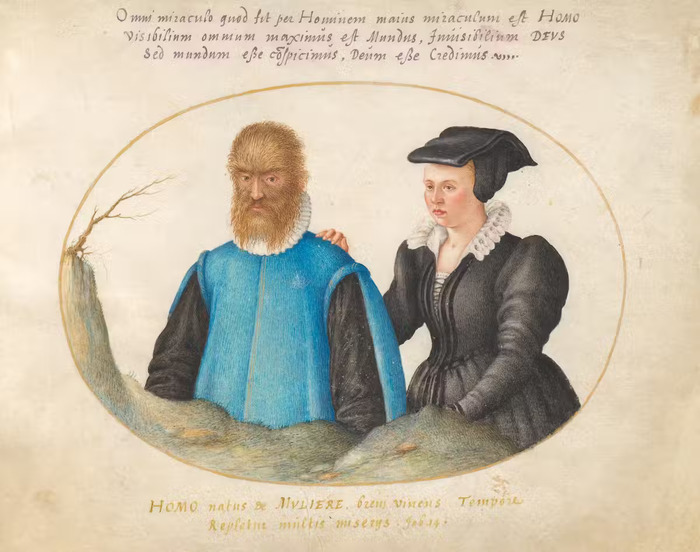 Omni miraculo quod fit per Hominem maius miraculum est HOMO
Visibilium omnium maximus est Mundus, Invisibilium DEVS
Sed mundum eſſe cōſpicimus, Deum eſſe Credimus
HOMO natus de MVLIERE, breui viuens Tempore
Repletur multis miserijs. Job. 14.